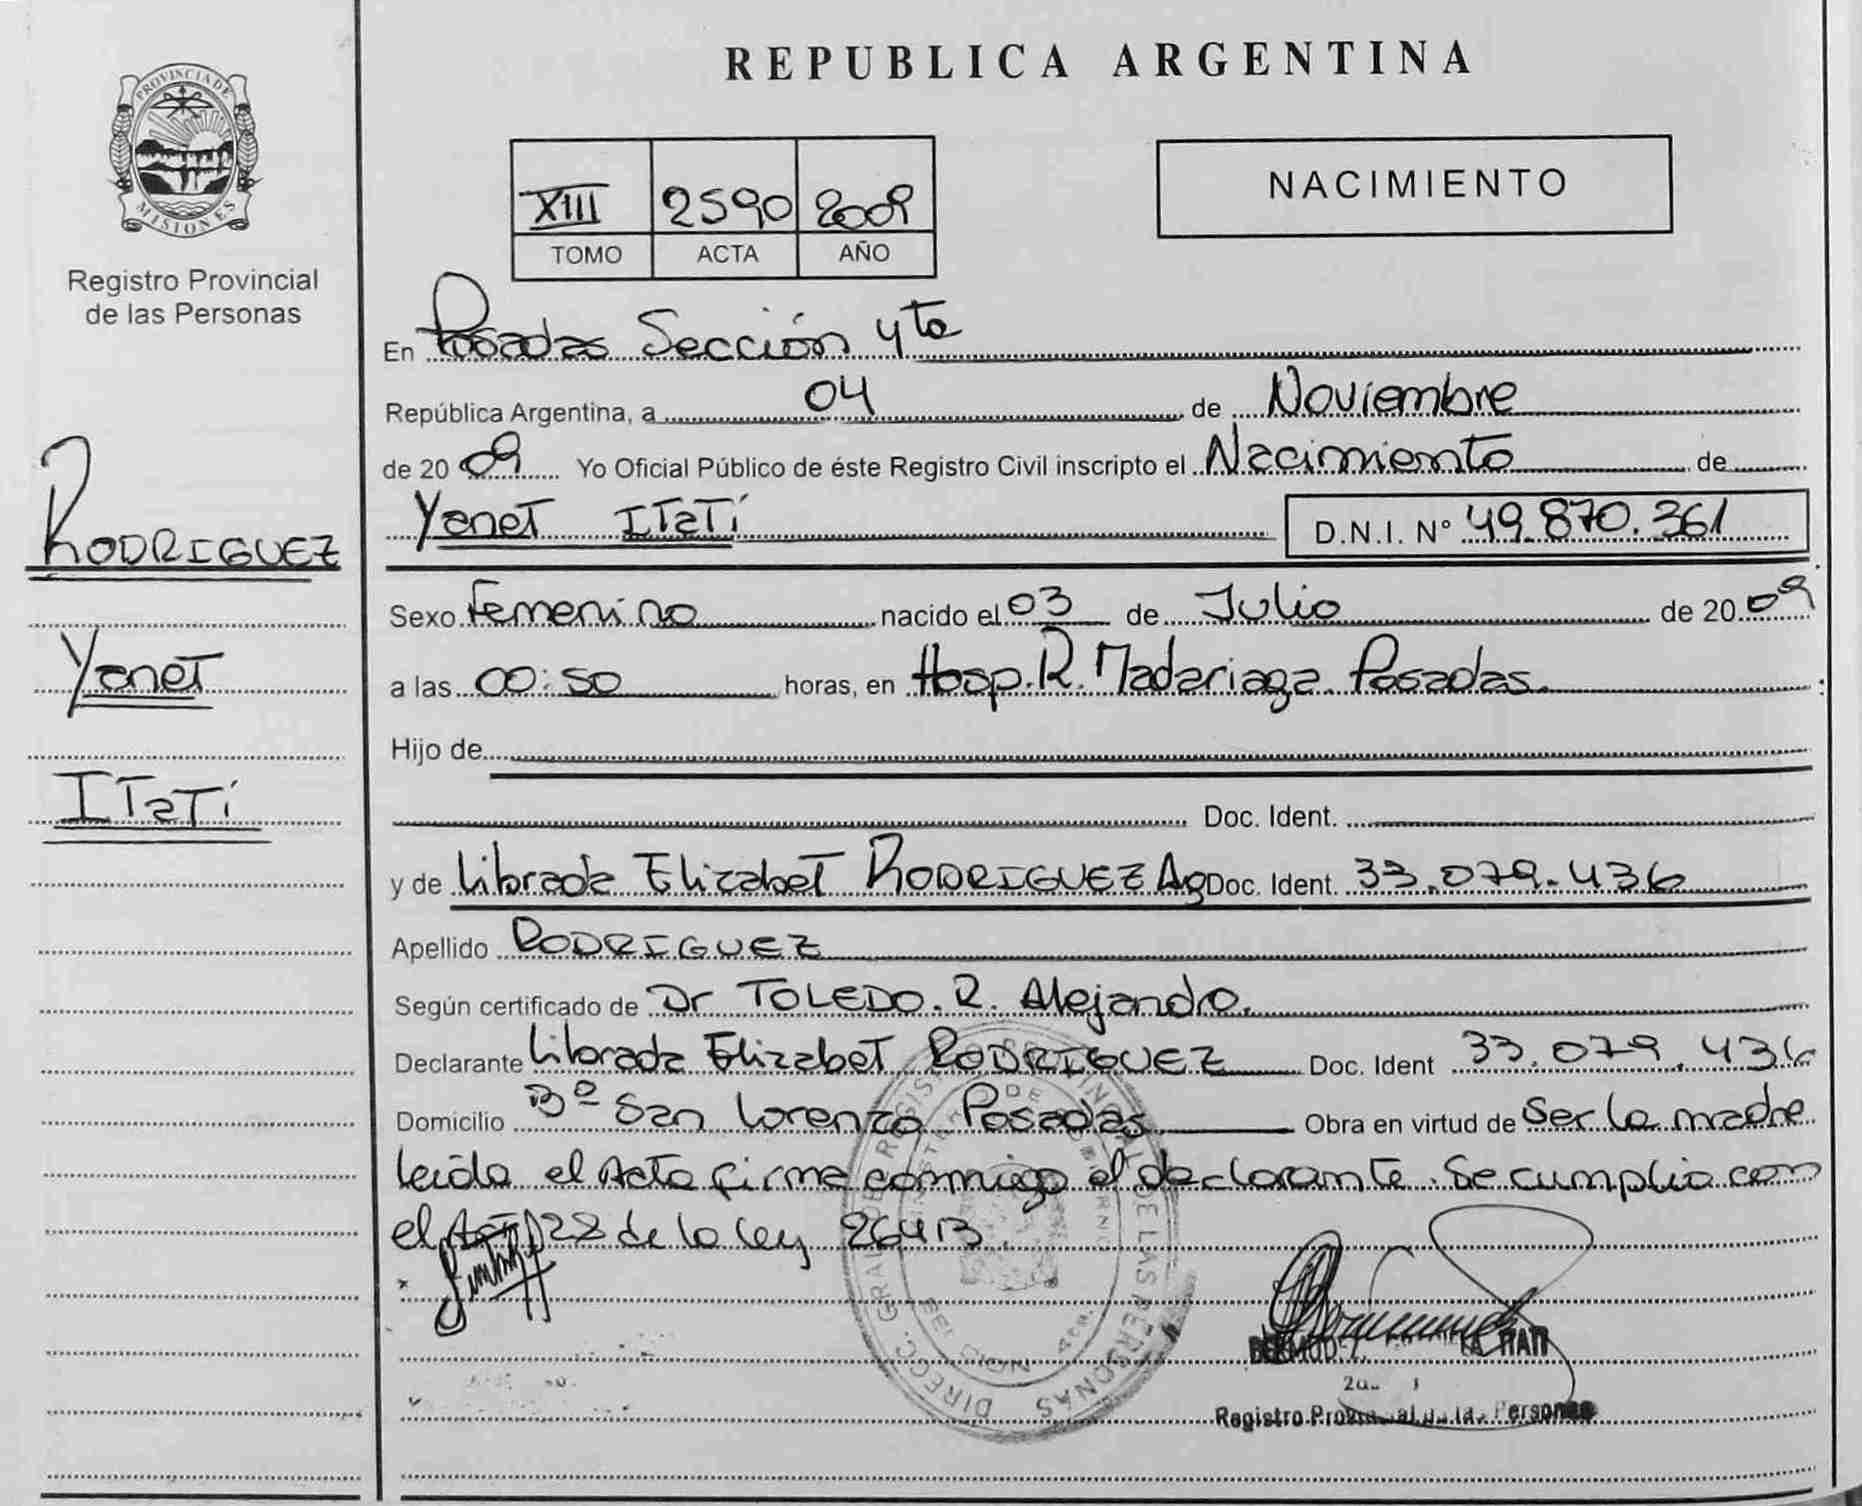 REPUBLICA ARGENTINA
PROVINCIA DE
MISIONES
Registro Provincial
de las Personas
XIII 2590 2009
TOMO ACTA AÑO
NACIMIENTO
RODRIGUEZ
Yanet
ITatí
En Posadas Sección 4ta
República Argentina, a 04 de Noviembre
de 20 09 Yo Oficial Público de éste Registro Civil inscripto el Nacimiento de
Yanet ITatí D.N.I. Nº 49.870.361
Sexo Femenino nacido el 03 de Julio de 20 09
a las 00:50 horas, en Hosp. R. Madariaga Posadas.
Hijo de
Doc. Ident.
y de Librada Elizabet RODRIGUEZ Ag Doc. Ident. 33.079.436
Apellido RODRIGUEZ
Según certificado de Dr TOLEDO. R. Alejandro.
Declarante Librada Elizabet RODRIGUEZ Doc. Ident 33.079.436
Domicilio Bº San Lorenzo Posadas Obra en virtud de Ser la madre
leida el Acta firma conmigo el declarante. Se cumplio con
el Art 28 de la ley 26413.
ITATI
Registro Provincial de las Personas